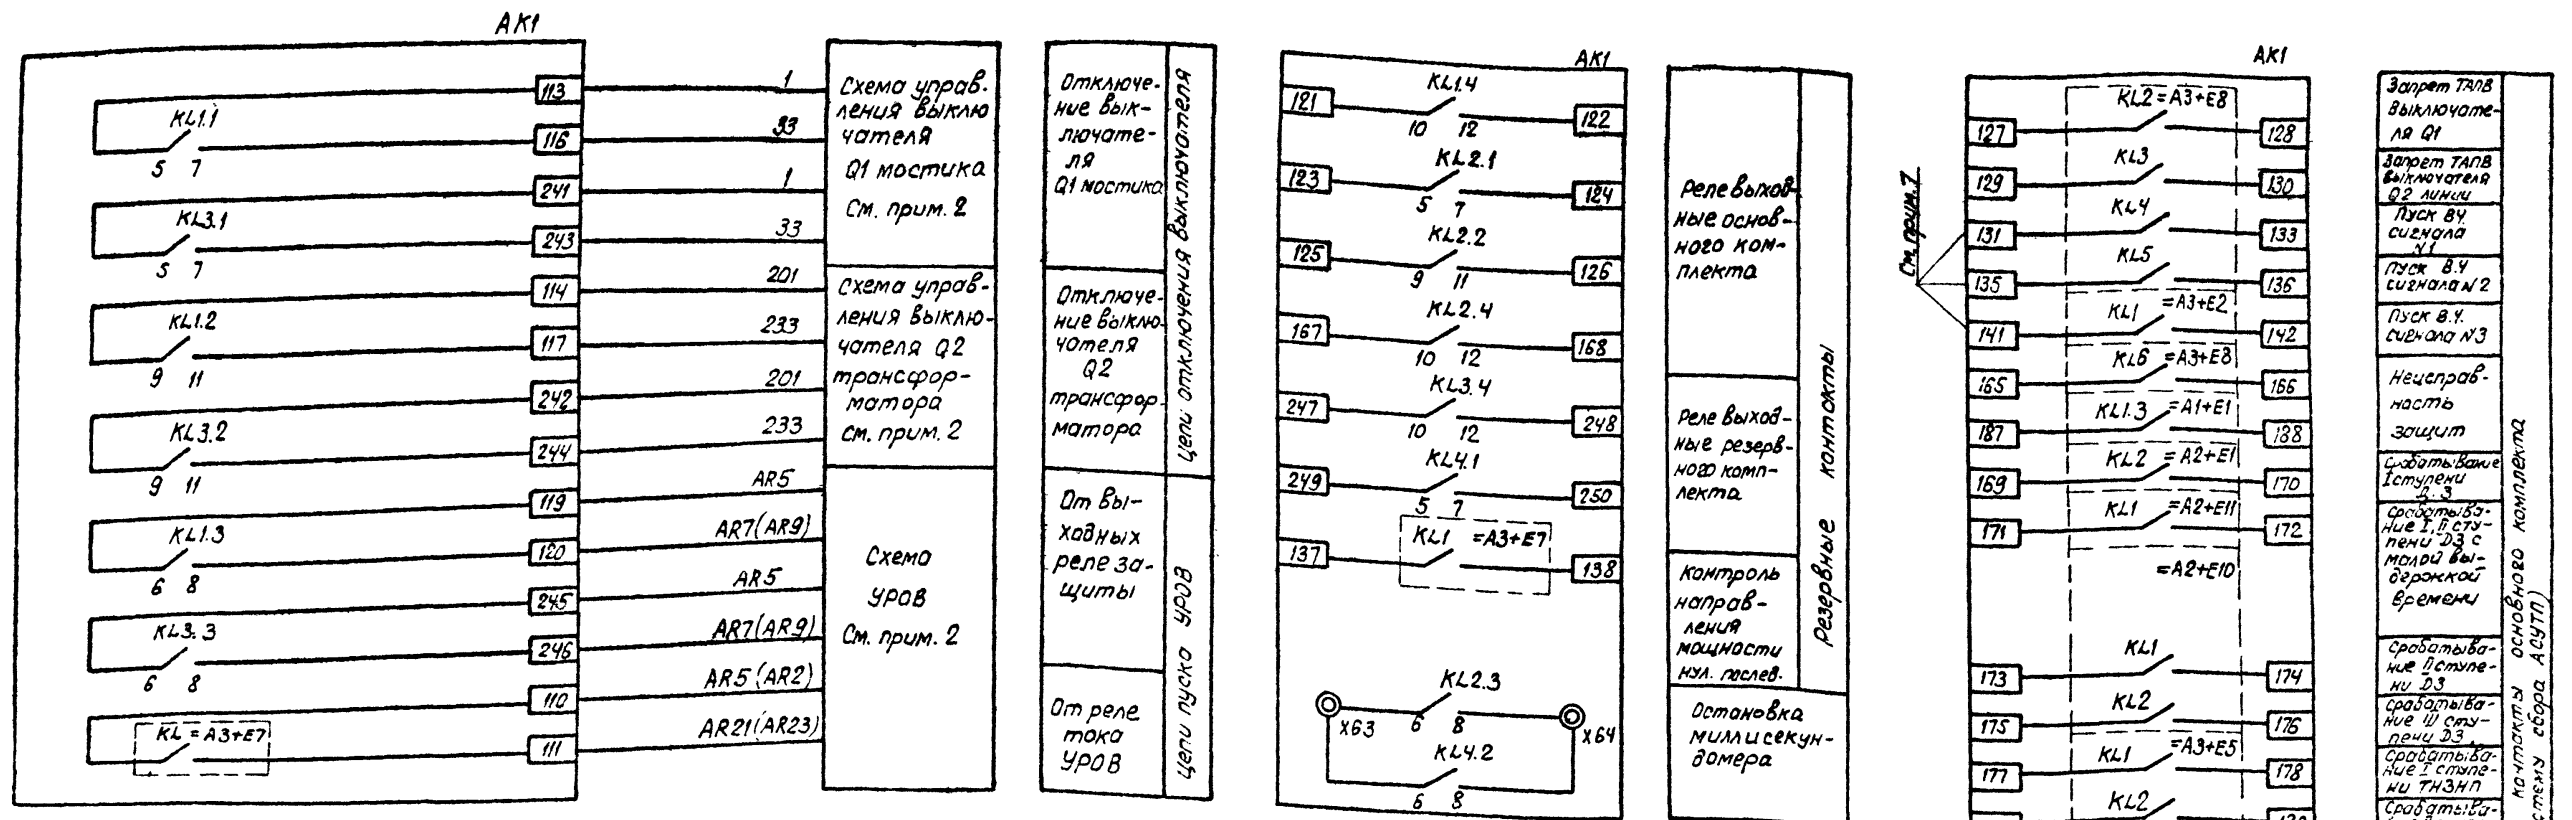 АК1
113
1
KL1.1
116
33
5 7
241
1
KL3.1
243
33
5 7
114
201
KL1.2
117
233
9 11
242
201
KL3.2
244
233
9 11
119
AR5
KL1.3
120
AR7(AR9)
6 8
245
AR5
KL3.3
246
AR7(AR9)
6 8
110
AR5(AR2)
KL =A3+E7
111
AR21(AR23)
Схема управ-
ления выклю
чателя
Q1 мостика
См. прим. 2
Схема управ-
ления выклю-
чателя Q2
трансфор-
матора
см. прим. 2
Схема
УРОВ
См. прим. 2
Отключе-
ние вык-
лючате-
ля
Q1 мостика
Отключе-
ние выклю-
чателя
Q2
трансфор
матора
От вы-
ходных
реле за-
щиты
От реле
тока
УРОВ
Цепи отключения выключателя
Цепи пуска УРОВ
АК1
KL1.4
121
122
10 12
KL2.1
123
124
5 7
KL2.2
125
126
9 11
KL2.4
167
168
10 12
KL3.4
247
248
10 12
KL4.1
249
250
5 7
KL1 =A3+E7
137
138
KL2.3
X63
6 8
X64
KL4.2
6 8
Реле выход-
ные основ-
ного ком-
плекта
Реле выход-
ные резерв-
ного комп-
лекта
Контроль
направ-
ления
мощности
нул. послед.
Остановка
миллисекун-
домера
Резервные контакты
АК1
См. прим. 7
KL2=A3+E8
127
128
KL3
129
130
KL4
131
133
KL5
135
136
KL1 =A3+E2
141
142
KL6 =A3+E8
165
166
KL1.3 =A1+E1
187
188
KL2 =A2+E1
169
170
KL1 =A2+E11
171
172
=A2+E10
KL1
173
174
KL2
175
176
KL1 =A3+E5
177
178
KL2
Запрет ТАПВ
выключате-
ля Q1
Запрет ТАПВ
выключателя
Q2 линии
Пуск ВЧ
сигнала
N1
Пуск В.Ч
сигнала N2
Пуск В.Ч.
сигнала N3
Неисправ-
ность
защит
Срабатывание
I ступени
Д.З
Срабатыва-
ние I, II сту-
пени ДЗ с
малой вы-
держкой
времени
Срабатыва-
ние II ступе-
ни ДЗ
Срабатыва-
ние III сту-
пени ДЗ
Срабатыва-
ние I ступе-
ни ТНЗНП
Срабатыва-
контакты основного комплекта
сбора АСУТП)